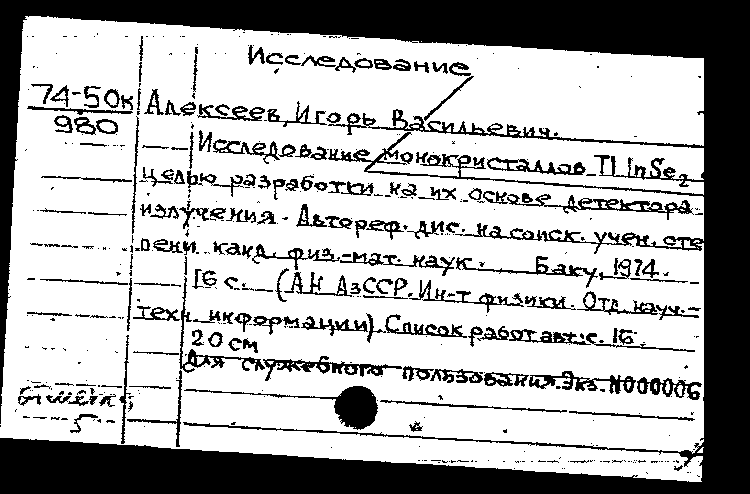 Исследование
74-50к Алексеев, Игорь Васильевич.
980
Исследование монокристаллов TlInSe2 с
целью разработки на их основе детектора
излучения. Автореф. дис. на соиск. учен. сте
пени канд. физ.-мат. наук. Баку, 1974.
16 с. (АН АзССР. Ин-т физики. Отд. науч.-
техн. информации). Список работ авт.: с. 16.
20 см
Для служебного пользования. Экз. N000006
5